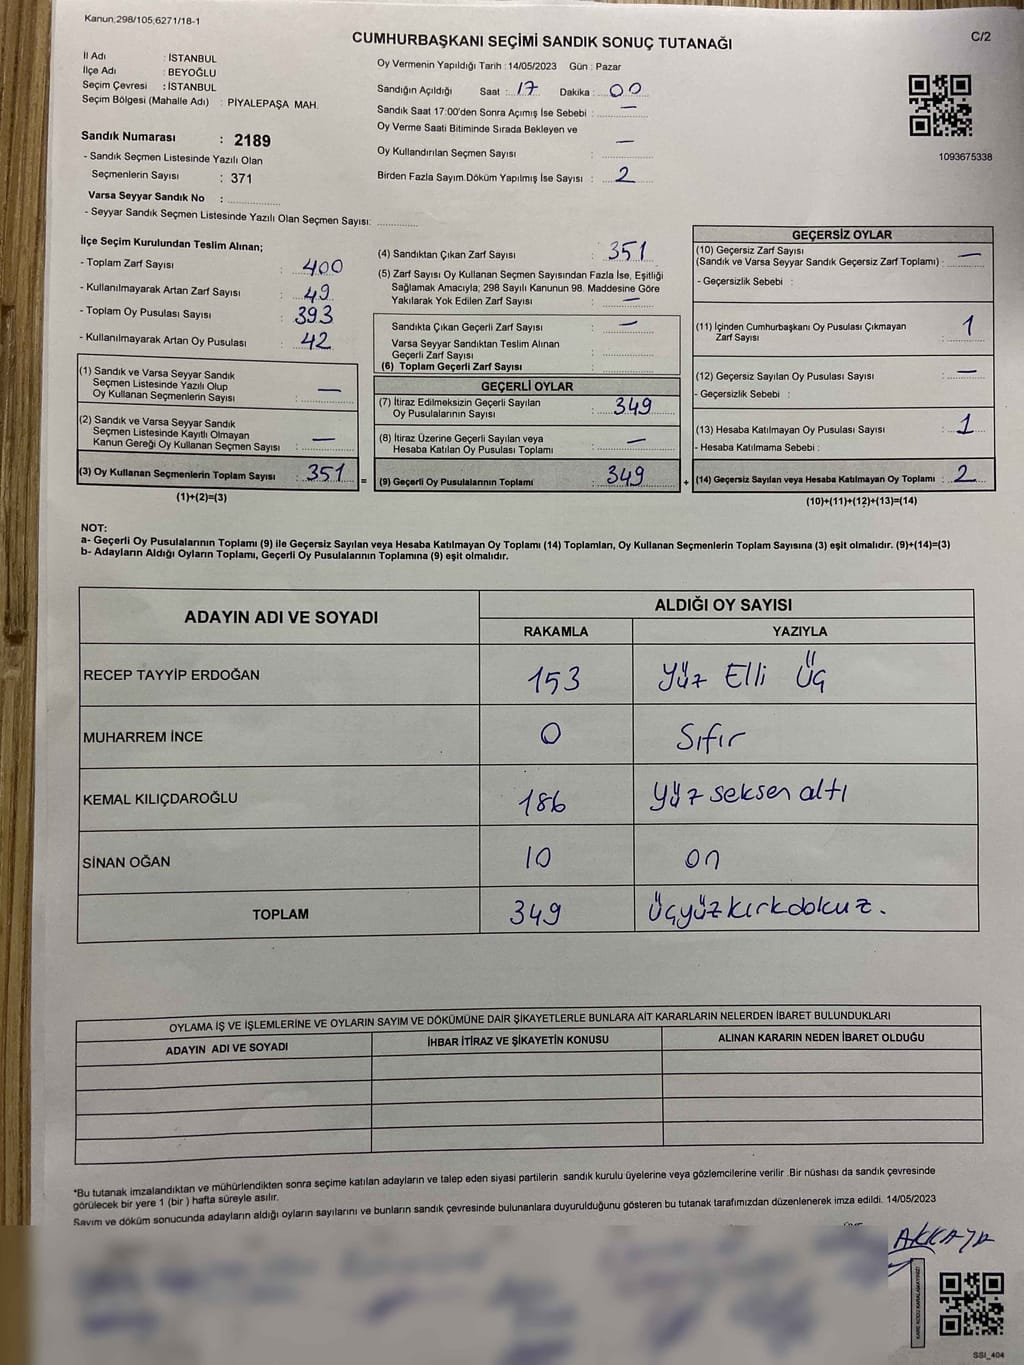 Kanun 298/105,6271/18-1
C/2
CUMHURBAŞKANI SEÇİMİ SANDIK SONUÇ TUTANAĞI
İl Adı : İSTANBUL
İlçe Adı : BEYOĞLU
Seçim Çevresi : İSTANBUL
Seçim Bölgesi (Mahalle Adı) : PİYALEPAŞA MAH.
Sandık Numarası : 2189
- Sandık Seçmen Listesinde Yazılı Olan
Seçmenlerin Sayısı : 371
Varsa Seyyar Sandık No :
- Seyyar Sandık Seçmen Listesinde Yazılı Olan Seçmen Sayısı:
Oy Vermenin Yapıldığı Tarih : 14/05/2023 Gün : Pazar
Sandığın Açıldığı Saat : 17 Dakika : 00
Sandık Saat 17:00'den Sonra Açımış İse Sebebi : —
Oy Verme Saati Bitiminde Sırada Bekleyen ve
Oy Kullandırılan Seçmen Sayısı : —
Birden Fazla Sayım Döküm Yapılmış İse Sayısı : 2
1093675338
İlçe Seçim Kurulundan Teslim Alınan;
- Toplam Zarf Sayısı : 400
- Kullanılmayarak Artan Zarf Sayısı : 49
- Toplam Oy Pusulası Sayısı : 393
- Kullanılmayarak Artan Oy Pusulası : 42
(1) Sandık ve Varsa Seyyar Sandık
Seçmen Listesinde Yazılı Olup
Oy Kullanan Seçmenlerin Sayısı : —
(2) Sandık ve Varsa Seyyar Sandık
Seçmen Listesinde Kayıtlı Olmayan
Kanun Gereği Oy Kullanan Seçmen Sayısı : —
(3) Oy Kullanan Seçmenlerin Toplam Sayısı : 351 =
(1)+(2)=(3)
(4) Sandıktan Çıkan Zarf Sayısı : 351
(5) Zarf Sayısı Oy Kullanan Seçmen Sayısından Fazla İse, Eşitliği
Sağlamak Amacıyla; 298 Sayılı Kanunun 98. Maddesine Göre
Yakılarak Yok Edilen Zarf Sayısı : —
Sandıkta Çıkan Geçerli Zarf Sayısı : —
Varsa Seyyar Sandıktan Teslim Alınan
Geçerli Zarf Sayısı :
(6) Toplam Geçerli Zarf Sayısı :
GEÇERLİ OYLAR
(7) İtiraz Edilmeksizin Geçerli Sayılan
Oy Pusulalarının Sayısı : 349
(8) İtiraz Üzerine Geçerli Sayılan veya
Hesaba Katılan Oy Pusulası Toplamı : —
(9) Geçerli Oy Pusulalarının Toplamı : 349 +
GEÇERSİZ OYLAR
(10) Geçersiz Zarf Sayısı
(Sandık ve Varsa Seyyar Sandık Geçersiz Zarf Toplamı) : —
- Geçersizlik Sebebi :
(11) İçinden Cumhurbaşkanı Oy Pusulası Çıkmayan
Zarf Sayısı : 1
(12) Geçersiz Sayılan Oy Pusulası Sayısı : —
- Geçersizlik Sebebi :
(13) Hesaba Katılmayan Oy Pusulası Sayısı : 1
- Hesaba Katılmama Sebebi :
(14) Geçersiz Sayılan veya Hesaba Katılmayan Oy Toplamı : 2
(10)+(11)+(12)+(13)=(14)
NOT:
a- Geçerli Oy Pusulalarının Toplamı (9) ile Geçersiz Sayılan veya Hesaba Katılmayan Oy Toplamı (14) Toplamları, Oy Kullanan Seçmenlerin Toplam Sayısına (3) eşit olmalıdır. (9)+(14)=(3)
b- Adayların Aldığı Oyların Toplamı, Geçerli Oy Pusulalarının Toplamına (9) eşit olmalıdır.
ADAYIN ADI VE SOYADI
ALDIĞI OY SAYISI
RAKAMLA YAZIYLA
RECEP TAYYİP ERDOĞAN 153 Yüz Elli Üç
MUHARREM İNCE 0 Sıfır
KEMAL KILIÇDAROĞLU 186 Yüz seksen altı
SİNAN OĞAN 10 on
TOPLAM 349 Üçyüzkırkdokuz.
OYLAMA İŞ VE İŞLEMLERİNE VE OYLARIN SAYIM VE DÖKÜMÜNE DAİR ŞİKAYETLERLE BUNLARA AİT KARARLARIN NELERDEN İBARET BULUNDUKLARI
ADAYIN ADI VE SOYADI İHBAR İTİRAZ VE ŞİKAYETİN KONUSU ALINAN KARARIN NEDEN İBARET OLDUĞU
*Bu tutanak imzalandıktan ve mühürlendikten sonra seçime katılan adayların ve talep eden siyasi partilerin sandık kurulu üyelerine veya gözlemcilerine verilir .Bir nüshası da sandık çevresinde
görülecek bir yere 1 (bir ) hafta süreyle asılır.
Sayım ve döküm sonucunda adayların aldığı oyların sayılarını ve bunların sandık çevresinde bulunanlara duyurulduğunu gösteren bu tutanak tarafımızdan düzenlenerek imza edildi. 14/05/2023
AKKAYA
KARE KODU KARALAMAYINIZ!
SSI_404